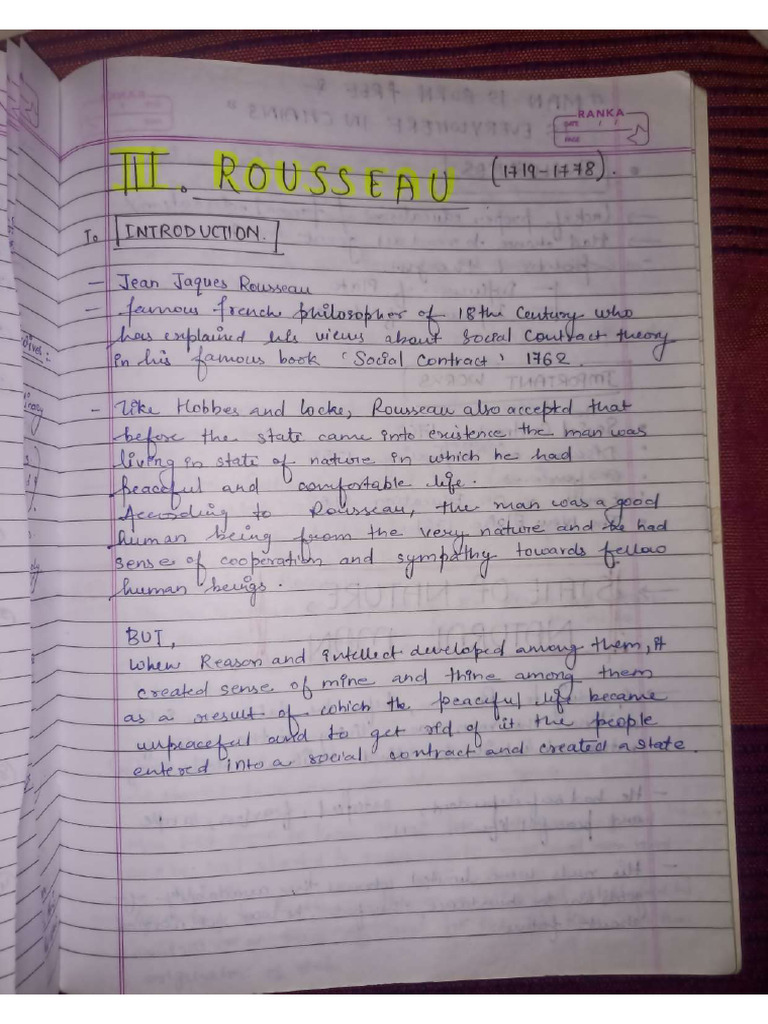 "MAN IS BORN FREE &
EVERYWHERE IN CHAINS"
RANKA
DATE / /
PAGE
III. ROUSSEAU (1719-1778).
INTRODUCTION.
- Jean Jaques Rousseau
- famous french philosopher of 18th Century who
has explained his views about social contract theory
in his famous book 'Social Contract' 1762.
- Like Hobbes and Locke, Rousseau also acceptd that
before the state came into existence the man was
living in state of nature in which he had
peaceful and comfortable life.
According to Rousseau, the man was a good
human being from the very nature and had
sense of cooperation and sympathy towards fellow
human beings.
BUT,
when Reason and intellect developed among them, it
created sense of mine and thine among them
as a result of which the peaceful life became
unpeaceful and to get rid of it the people
entered into a social contract and created a state.